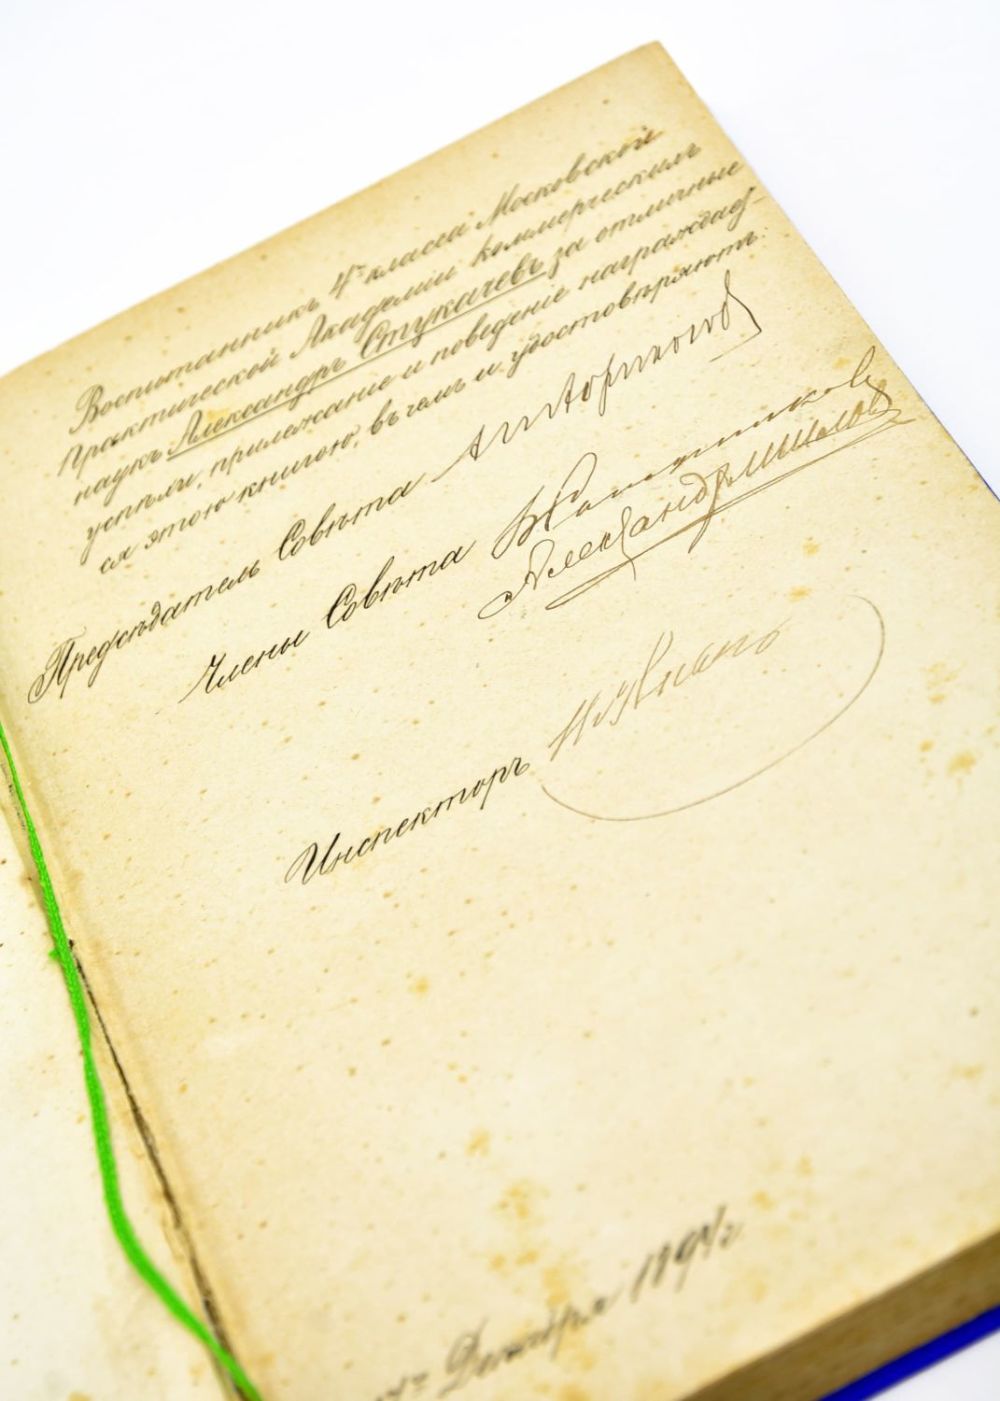 Воспитанникъ 4го класса Московской
Практической Академіи коммерческихъ
наукъ Александръ Стукачевъ за отличные
успѣхи, прилежаніе и поведеніе награждает-
ся этою книгою, въ чемъ и удостовѣряютъ:
Предсѣдатель Совѣта
Члены Совѣта
Александр
Инспекторъ
Декабря 189